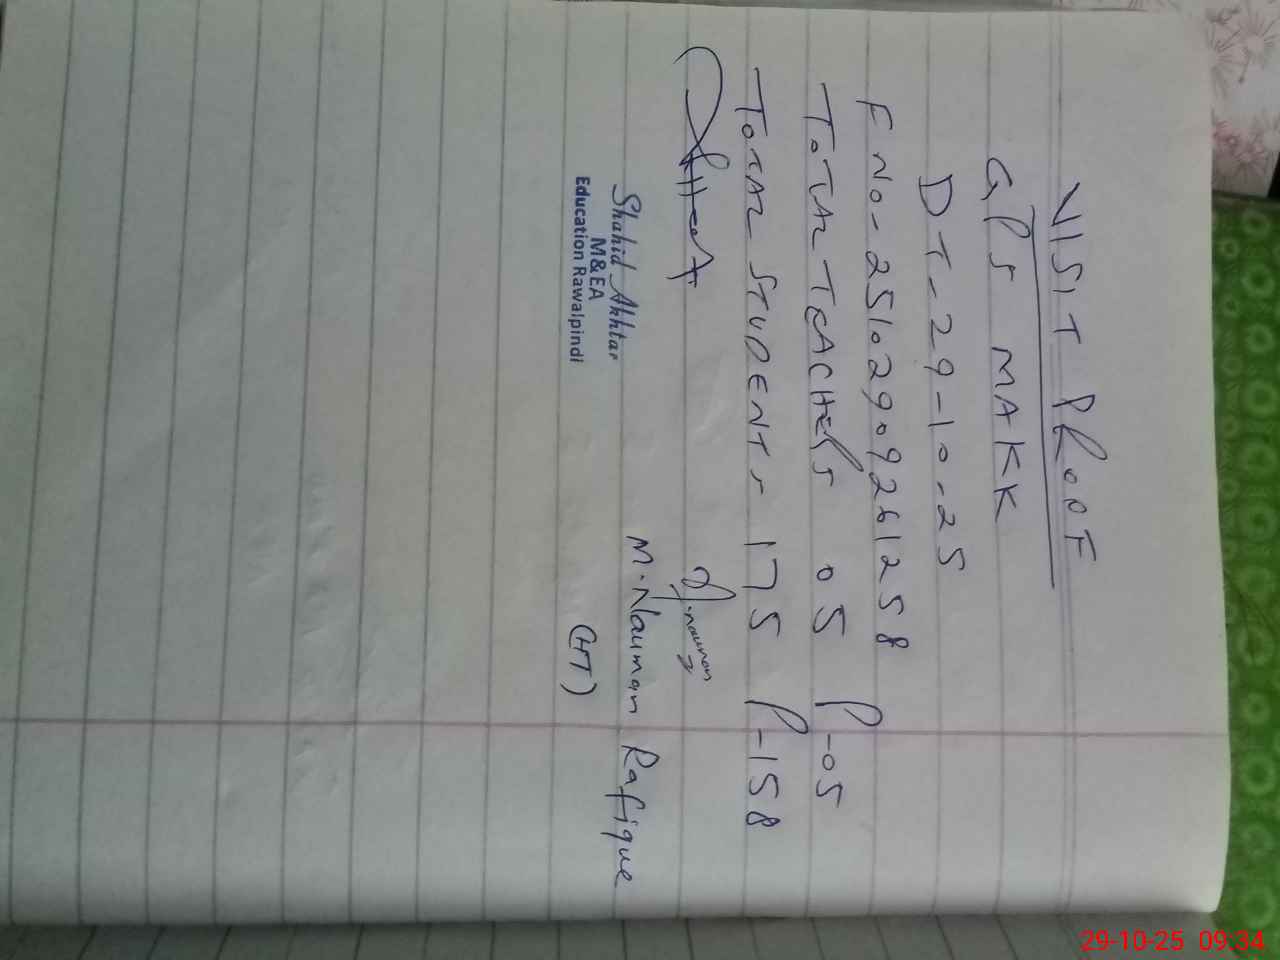 VISIT PROOF
GPS MAKK
DT-29-10-25
F No-25102909261258
TOTAL TEACHERS 05 P-05
TOTAL STUDENTS 175 P-158
M.nauman
Shahid Akhtar M.Nauman Rafique
M&EA (HT)
Education Rawalpindi
29-10-25 09:34